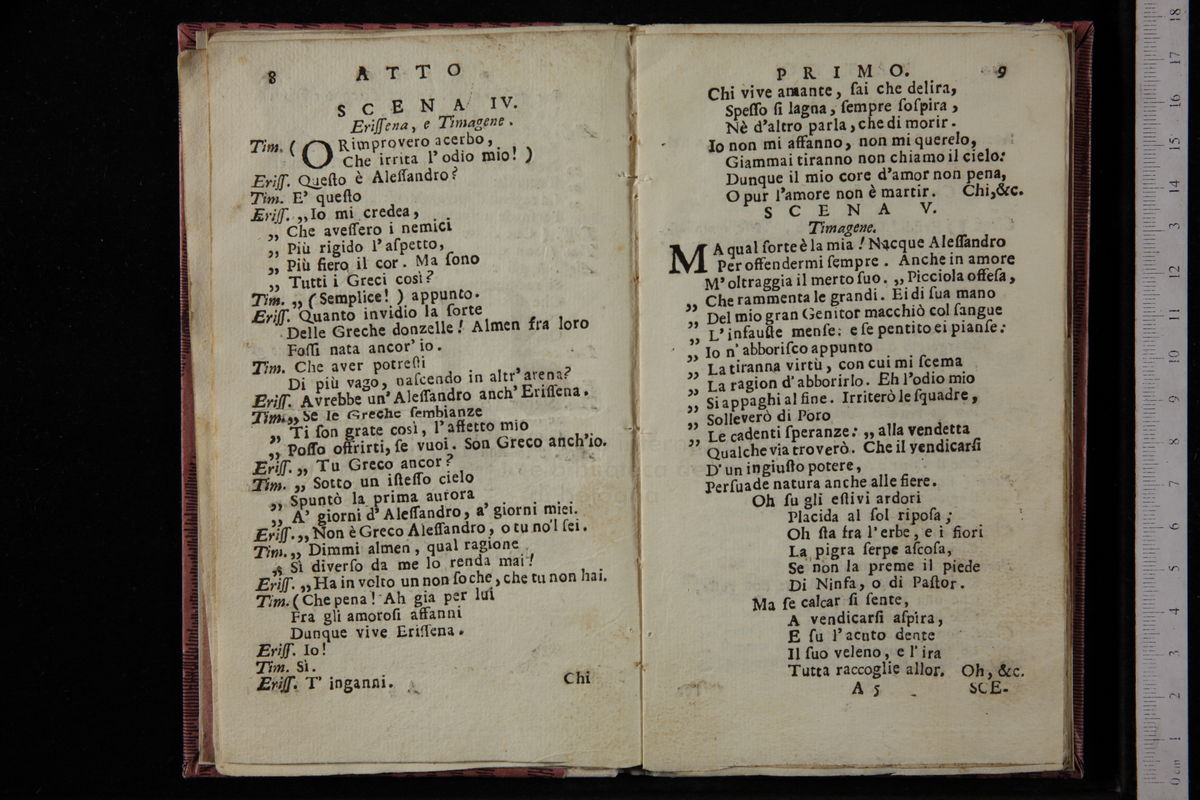 8 ATTO
SCENA IV.
Eriſſena, e Timagene.
Tim. ( O Rimprovero acerbo,
Che irrita l'odio mio! )
Eriſſ. Queſto è Aleſſandro?
Tim. E' queſto
Eriſſ. „Io mi credea,
„ Che aveſſero i nemici
„ Più rigido l'aſpetto,
„ Più fiero il cor. Ma ſono
„ Tutti i Greci così?
Tim. „ ( Semplice! ) appunto.
Eriſſ. Quanto invidio la ſorte
Delle Greche donzelle! Almen fra loro
Foſſi nata ancor'io.
Tim. Che aver potreſti
Di più vago, naſcendo in altr'arena?
Eriſſ. Avrebbe un'Aleſſandro anch'Eriſſena.
Tim. „ Se le Greche ſembianze
„ Ti ſon grate così, l'affetto mio
„ Poſſo offrirti, ſe vuoi. Son Greco anch'io.
Eriſſ. „ Tu Greco ancor?
Tim. „ Sotto un iſteſſo cielo
„ Spuntò la prima aurora
„ A' giorni d'Aleſſandro, a' giorni miei.
Eriſſ. „ Non è Greco Aleſſandro, o tu no'l ſei.
Tim. „ Dimmi almen, qual ragione
„ Sì diverſo da me lo renda mai!
Eriſſ. „ Ha in volto un non ſo che, che tu non hai.
Tim. ( Che pena! Ah gia per lui
Fra gli amoroſi affanni
Dunque vive Eriſſena.
Eriſſ. Io!
Tim. Sì.
Eriſſ. T' inganni.
Chi
PRIMO. 9
Chi vive amante, ſai che delira,
Speſſo ſi lagna, ſempre ſoſpira,
Nè d'altro parla, che di morir.
Io non mi affanno, non mi querelo,
Giammai tiranno non chiamo il cielo:
Dunque il mio core d'amor non pena,
O pur l'amore non è martir. Chi,&c.
SCENA V.
Timagene.
MA qual ſorte è la mia! Nacque Aleſſandro
Per offendermi ſempre. Anche in amore
M'oltraggia il merto ſuo. „ Picciola offeſa,
„ Che rammenta le grandi. Ei di ſua mano
„ Del mio gran Genitor macchiò col ſangue
„ L'infauſte menſe: e ſe pentito ei pianſe:
„ Io n'abboriſco appunto
„ La tiranna virtù, con cui mi ſcema
„ La ragion d'abborirlo. Eh l'odio mio
„ Si appaghi al fine. Irriterò le ſquadre,
„ Solleverò di Poro
„ Le cadenti ſperanze: „ alla vendetta
Qualche via troverò. Che il vendicarſi
D'un ingiuſto potere,
Perſuade natura anche alle fiere.
Oh ſu gli eſtivi ardori
Placida al ſol ripoſa;
Oh ſta fra l'erbe, e i fiori
La pigra ſerpe aſcoſa,
Se non la preme il piede
Di Ninfa, o di Paſtor.
Ma ſe calcar ſi ſente,
A vendicarſi aſpira,
E ſu l'acuto dente
Il ſuo veleno, e l'ira
Tutta raccoglie allor. Oh, &c.
A 5 SCE-
0 cm 1 2 3 4 5 6 7 8 9 10 11 12 13 14 15 16 17 18